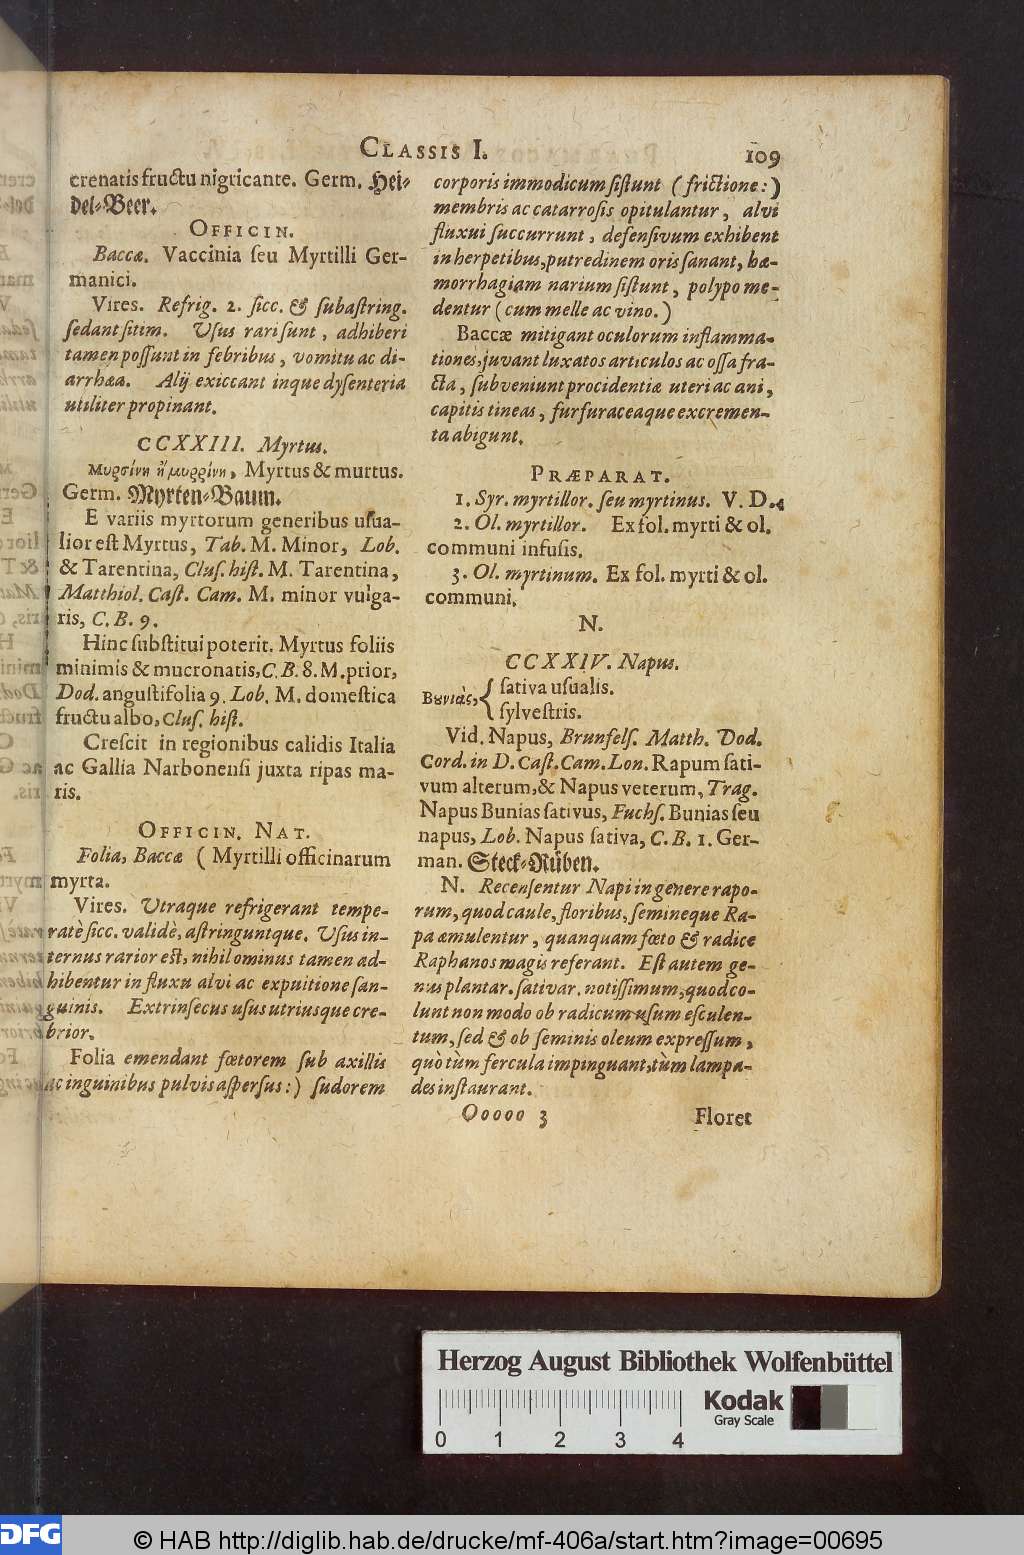 CLASSIS I.
109
crenatis fructu nigricante. Germ. Hei-
del-Beer.
OFFICIN.
Baccæ. Vaccinia ſeu Myrtilli Ger-
manici.
Vires. Refrig. 2. ſicc. & ſubaſtring.
ſedant ſitim. Uſus rari ſunt, adhiberi
tamen poſſunt in febribus, vomitu ac di-
arrhæa. Alij exiccant inque dyſenteria
utiliter propinant.
CCXXIII. Myrtus.
Μυρσίνη ἢ μυρρίνη, Myrtus & murtus.
Germ. Myrten-Baum.
E variis myrtorum generibus uſua-
lior eſt Myrtus, Tab. M. Minor, Lob.
& Tarentina, Cluſ. hiſt. M. Tarentina,
Matthiol. Caſt. Cam. M. minor vulga-
ris, C. B. 9.
Hinc ſubſtitui poterit. Myrtus foliis
minimis & mucronatis, C. B. 8. M. prior,
Dod. anguſtifolia 9. Lob. M. domeſtica
fructu albo, Cluſ. hiſt.
Creſcit in regionibus calidis Italia
ac Gallia Narbonenſi juxta ripas ma-
ris.
OFFICIN. NAT.
Folia, Baccæ ( Myrtilli officinarum
myrta.
Vires. Utraque refrigerant tempe-
ratè ſicc. validè, aſtringuntque. Uſus in-
ternus rarior est, nihilominus tamen ad-
hibentur in fluxu alvi ac expuitione ſan-
guinis. Extrinſecus uſus utriusque cre-
brior.
Folia emendant fœtorem ſub axillis
ac inguinibus pulvis aſperſus:) ſudorem
corporis immodicum ſiſtunt ( frictione:)
membris ac catarroſis opitulantur, alvi
fluxui ſuccurrunt, defenſivum exhibent
in herpetibus, putredinem oris ſanant, hæ-
morrhagiam narium ſiſtunt, polypo me-
dentur ( cum melle ac vino.)
Baccæ mitigant oculorum inflamma-
tiones, juvant luxatos articulos ac oſſa fra-
cta, ſubveniunt procidentiæ uteri ac ani,
capitis tineas, furfuraceaque excremen-
ta abigunt.
PRÆPARAT.
1. Syr. myrtillor. ſeu myrtinus. V. D.
2. Ol. myrtillor. Ex fol. myrti & ol.
communi infuſis.
3. Ol. myrtinum. Ex fol. myrti & ol.
communi.
N.
CCXXIV. Napus.
Βȣνιὰς, { ſativa uſualis.
ſylveſtris.
Vid. Napus, Brunfelſ. Matth. Dod.
Cord. in D. Caſt. Cam. Lon. Rapum ſati-
vum alterum, & Napus veterum, Trag.
Napus Bunias ſativus, Fuchſ. Bunias ſeu
napus, Lob. Napus ſativa, C. B. 1. Ger-
man. Steck-Rüben.
N. Recenſentur Napi in genere rapo-
rum, quod caule, floribus, ſemineque Ra-
pa æmulentur, quanquam fœto & radice
Raphanos magis referant. Eſt autem ge-
nus plantar. ſativar. notiſſimum, quod co-
lunt non modo ob radicum uſum eſculen-
tum, ſed & ob ſeminis oleum expreſſum,
quò tùm fercula impinguant, tùm lampa-
des inſtaurant.
Ooooo 3
Floret
Herzog August Bibliothek Wolfenbüttel
Kodak
Gray Scale
0 1 2 3 4
DFG
© HAB http://diglib.hab.de/drucke/mf-406a/start.htm?image=00695